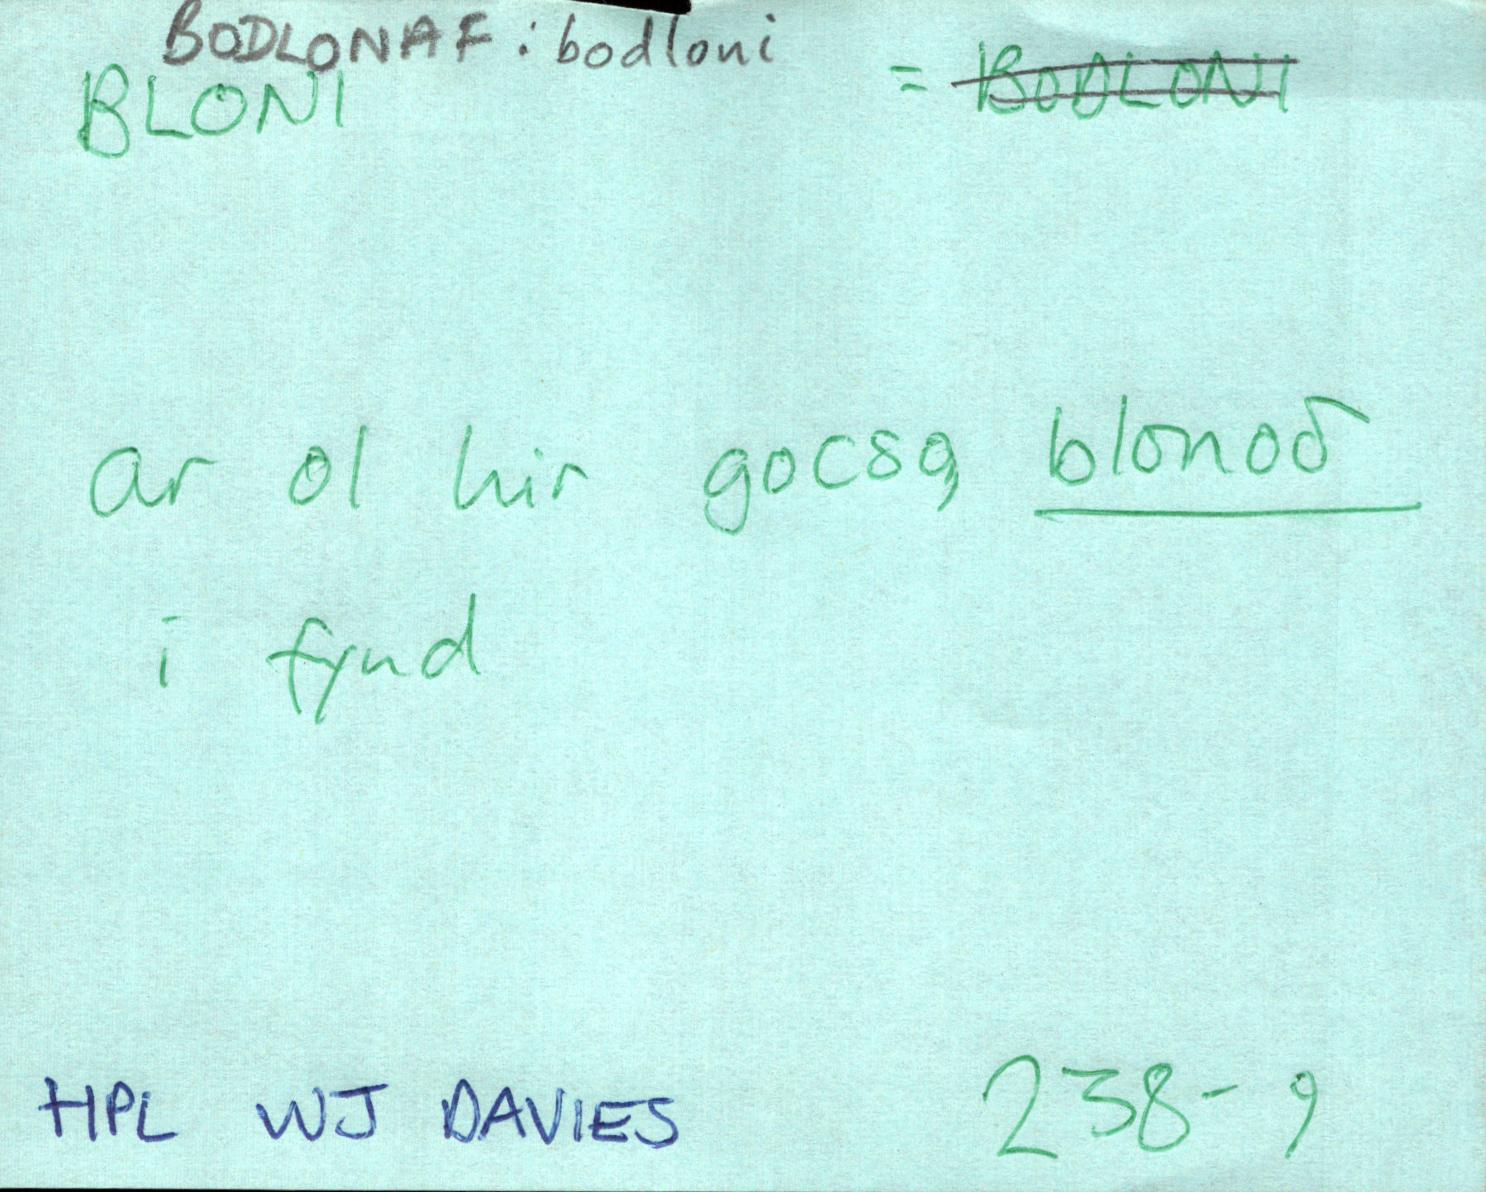 BODLONAF : bodloni
BLONI = BODLONI
ar ol hir gocso, blonoδ
i fynd
HPL WJ DAVIES 238-9